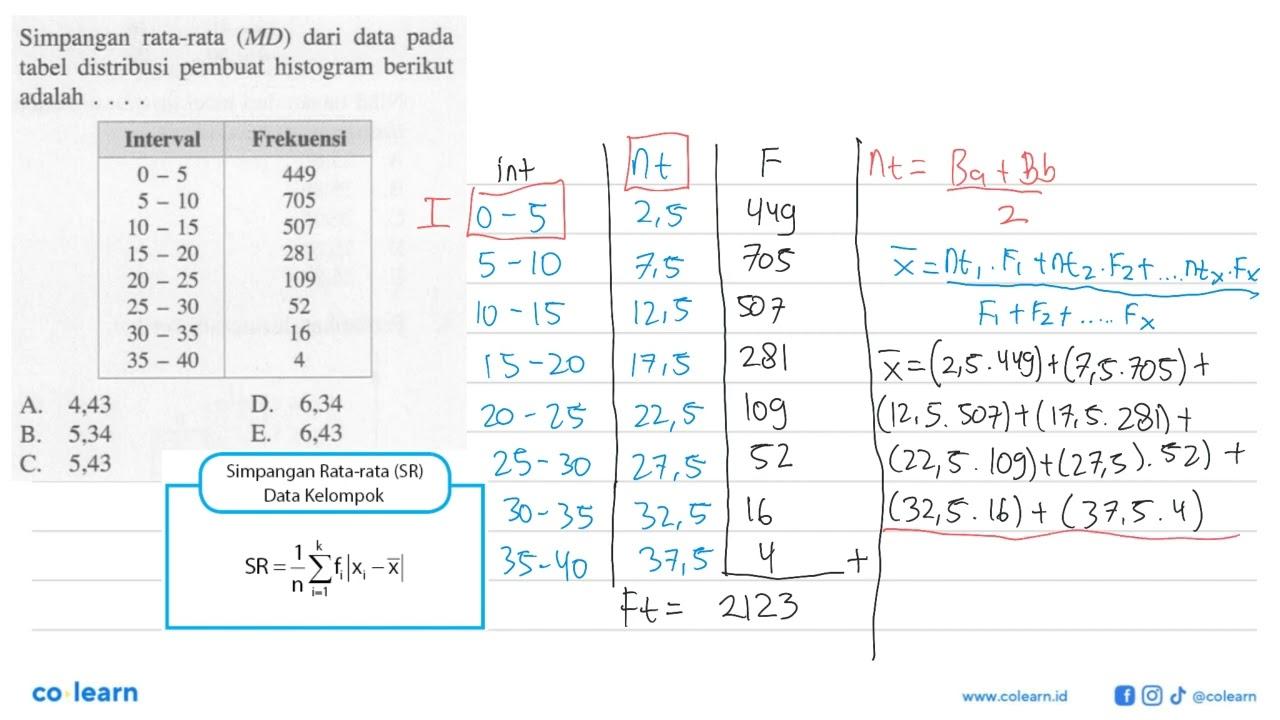 Simpangan rata-rata (MD) dari data pada
tabel distribusi pembuat histogram berikut
adalah . . . .
Interval Frekuensi
0 – 5 449
5 – 10 705
10 – 15 507
15 – 20 281
20 – 25 109
25 – 30 52
30 – 35 16
35 – 40 4
A. 4,43 D. 6,34
B. 5,34 E. 6,43
C. 5,43
Simpangan Rata-rata (SR)
Data Kelompok
SR = 1/n ∑ᵏᵢ₌₁ fᵢ|xᵢ – x̄|
int nt F
I 0 - 5 2,5 449
5 - 10 7,5 705
10 - 15 12,5 507
15 - 20 17,5 281
20 - 25 22,5 109
25 - 30 27,5 52
30 - 35 32,5 16
35 - 40 37,5 4 +
Ft = 2123
nt = Ba + Bb
2
x̄ = nt₁ . F₁ + nt₂ . F₂ + ... ntₓ . Fₓ
F₁ + F₂ + ..... Fₓ
x̄ = (2,5 . 449) + (7,5 . 705) +
(12,5 . 507) + (17,5 . 281) +
(22,5 . 109) + (27,5) . 52) +
(32,5 . 16) + (37,5 . 4)
co learn
www.colearn.id @colearn